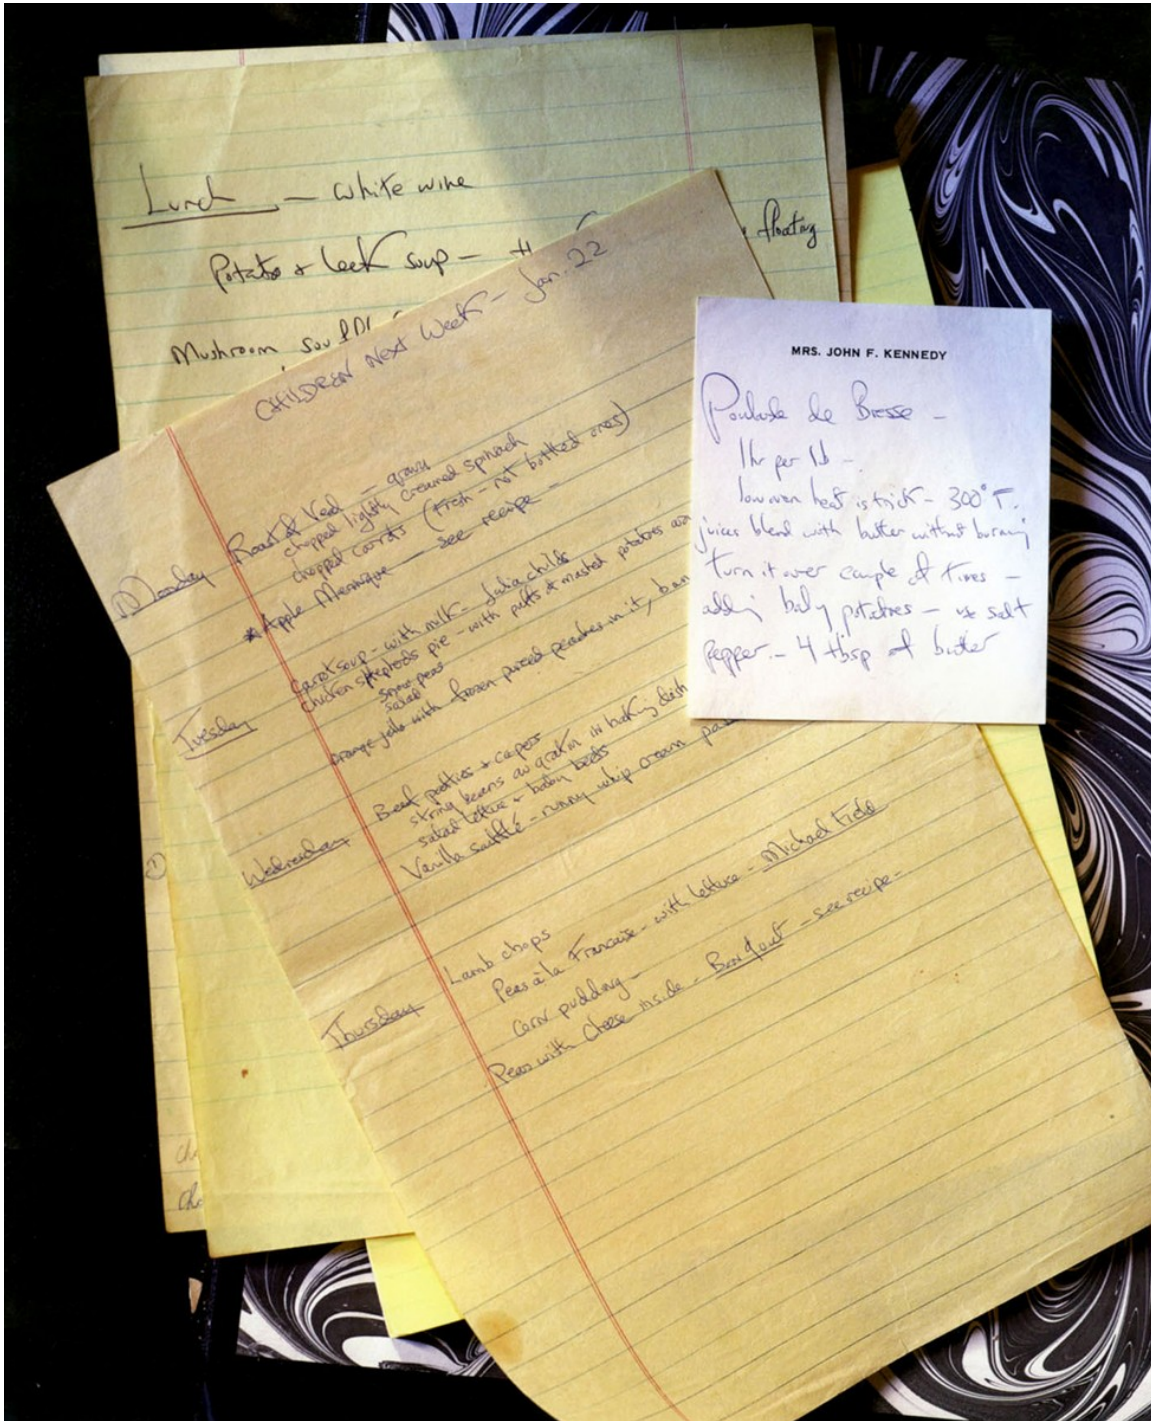 Lunch — white wine
Potato + leek soup — floating
Mushroom
CHILDREN Next Week — Jan. 22
Monday
Roast of Veal — gravy
chopped lightly creamed spinach
chopped carrots (fresh - not bottled ones)
* Apple Meringue — see recipe —
Tuesday
Carrot soup - with milk - Julia childs
chicken shepherds pie - with puffs of mashed potatoes
snow peas
salad
orange jello with frozen pureed peaches in it,
Wednesday
Beef patties + capers
string beans au gratin in baking dish
salad lettuce + baby beets
Vanilla soufflé - runny whip cream
Thursday
Lamb chops
Peas à la Francaise - with lettuce - Michael Field
Corn pudding -
Pears with cheese inside - - see recipe -
①
MRS. JOHN F. KENNEDY
Poularde de Bresse —
1hr per lb —
low oven heat is trick - 300° F.
juices blend with butter without burning
turn it over couple of times —
adding baby potatoes — salt
pepper. — 4 tbsp of butter